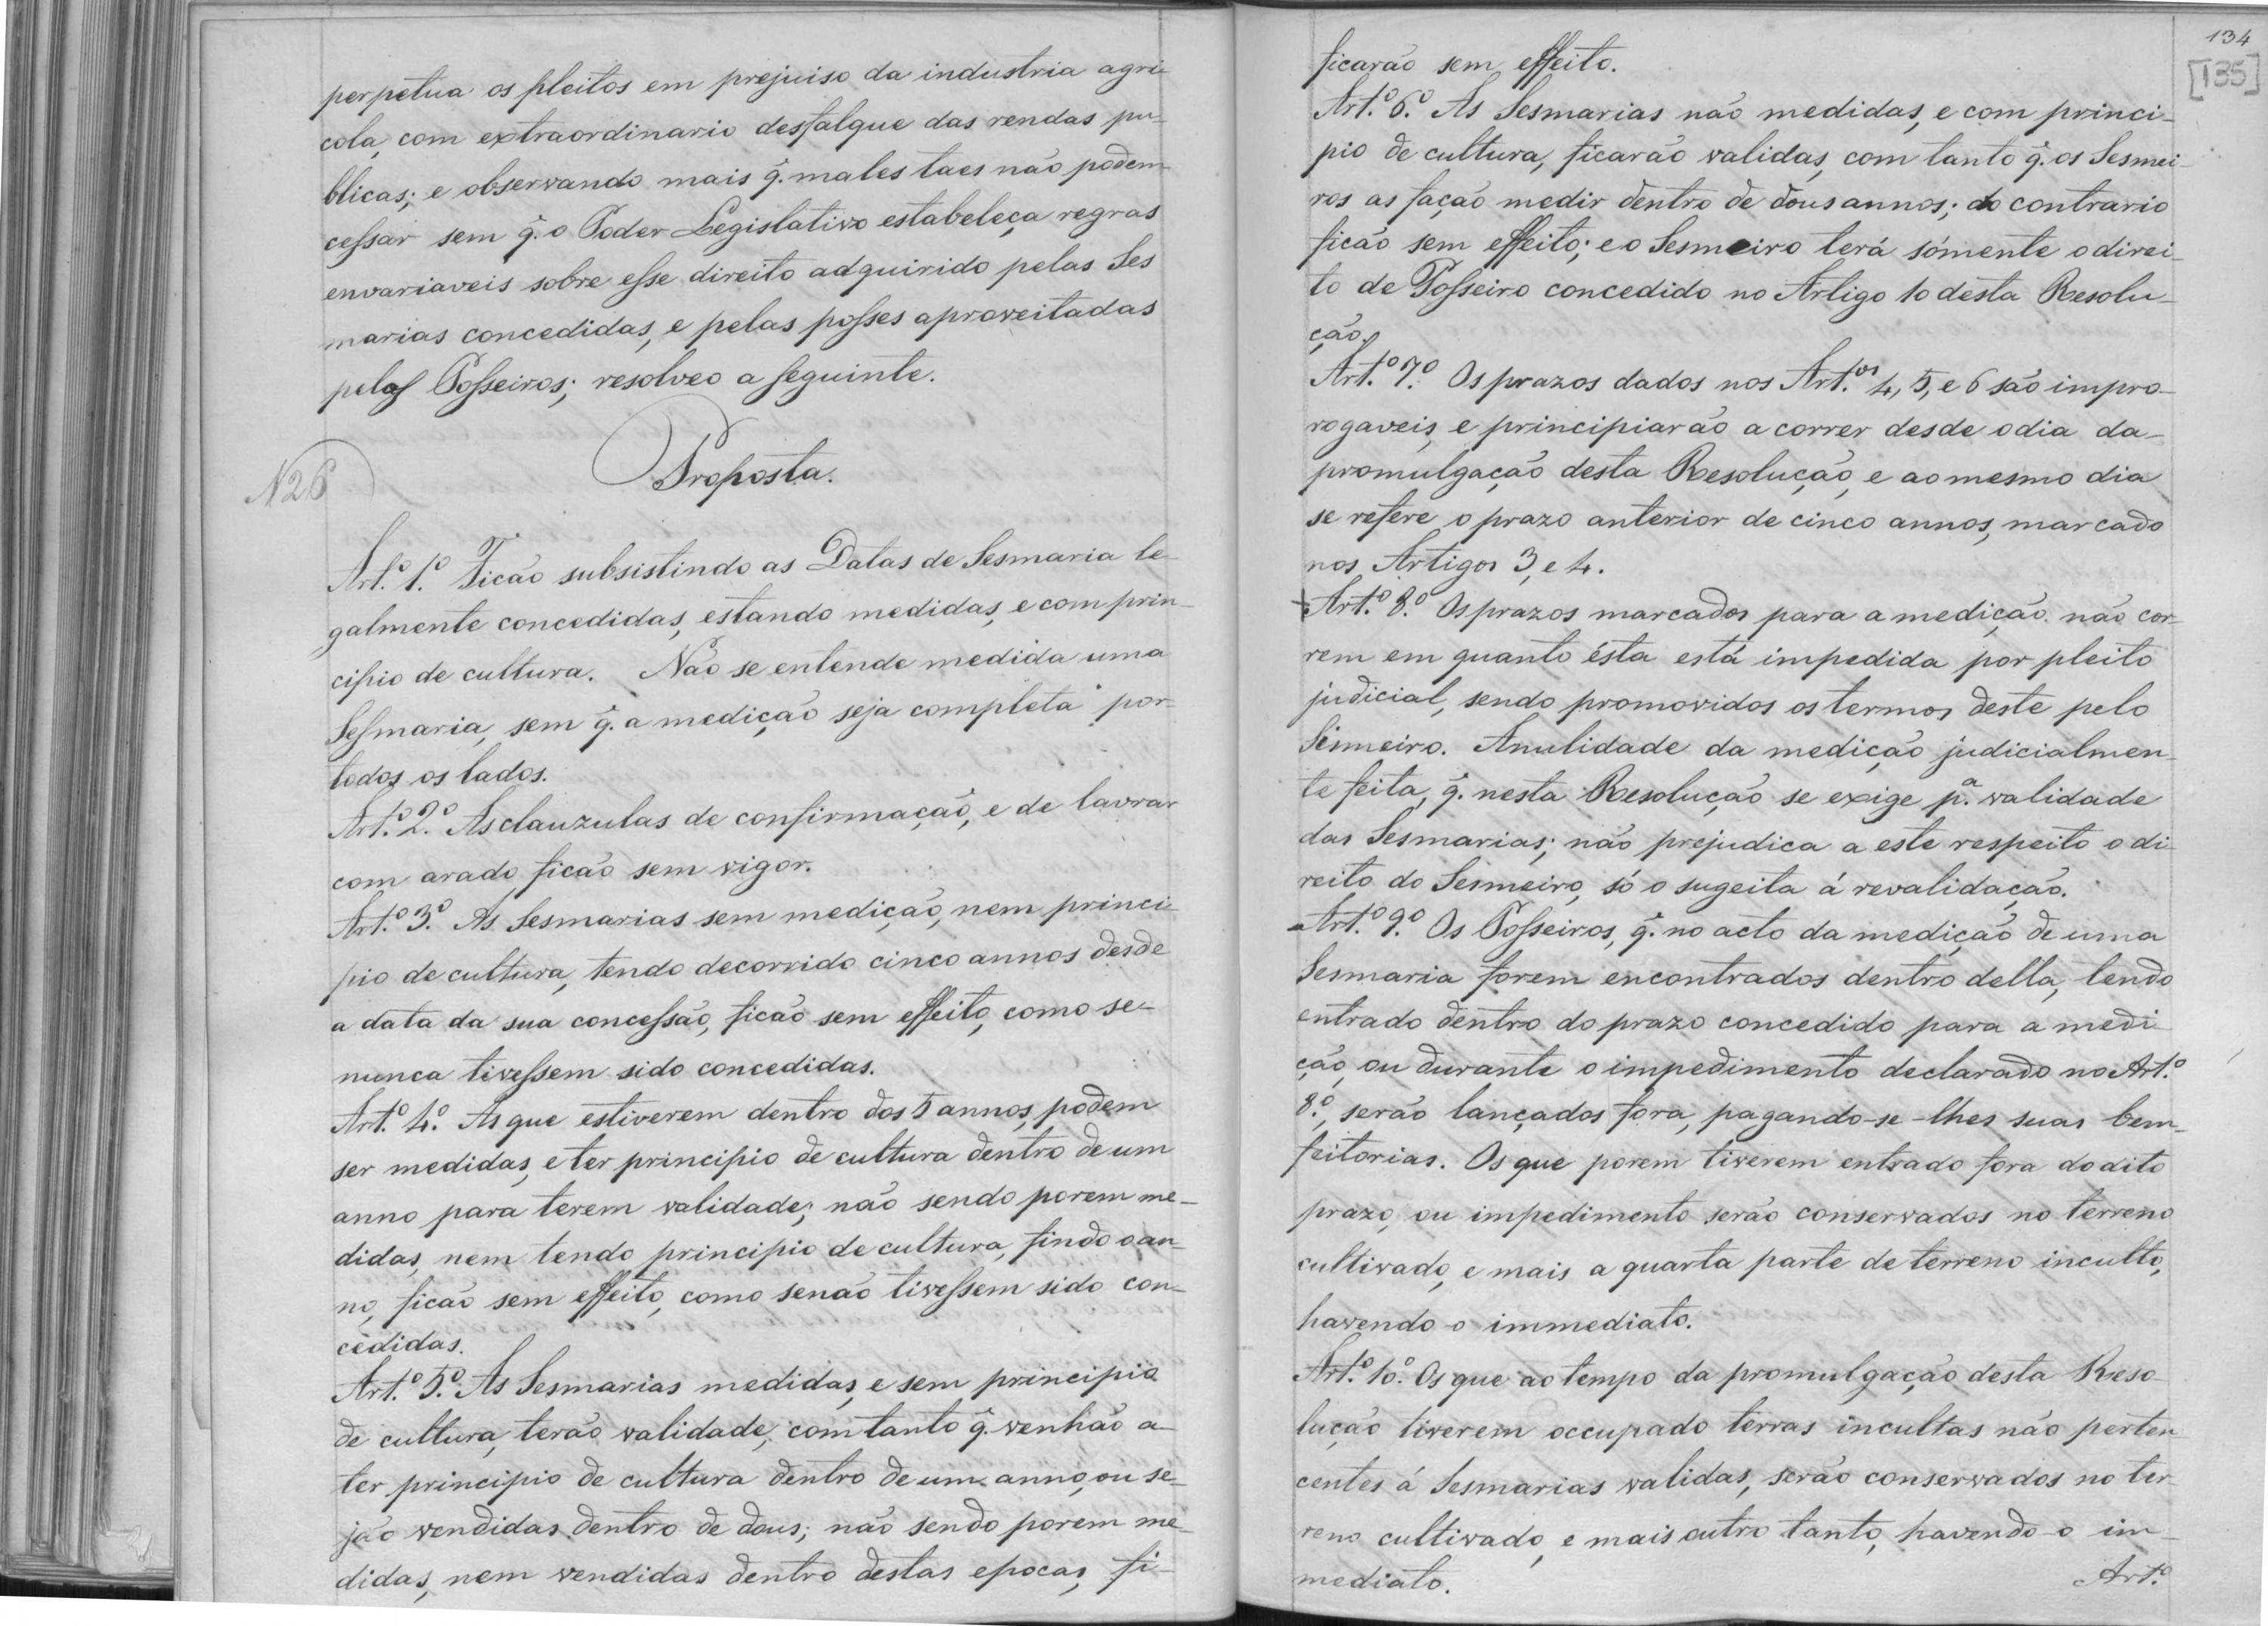 perpetúa os pleitos em prejuiso da industria agri-
cola, com extraordinario desfalque das rendas pu-
blicas; e observando mais q̃. males taes não podem
cessar sem q̃. o Poder Legislativo estabeleça regras
envariaveis sobre esse direito adquirido pelas Ses
marias concedidas, e pelas posses aproveitadas
pelos Posseiros; resolveo a seguinte.
Proposta.
N 26
Art.º 1.º Ficão subsistindo as Datas de Sesmaria le-
galmente concedidas, estando medidas, e com prin-
cipio de cultura. Não se entende medida uma
Sesmaria, sem q̃. a medição seja completa por-
todos os lados.
Art.º 2.º As clauzulas de confirmação, e de lavrar
com arado ficão sem vigor.
Art.º 3.º As Sesmarias sem medição, nem princi-
pio de cultura, tendo decorrido cinco annos desde
a data da sua concessão, ficão sem effeito, como se-
nunca tivessem sido concedidas.
Art.º 4.º As que estiverem dentro dos 5 annos, podem
ser medidas, e ter principio de cultura dentro de um
anno para terem validade; não sendo porem me-
didas, nem tendo principio de cultura, findo o an-
no, ficão sem effeito, como senão tivessem sido con-
cedidas.
Art.º 5.º As Sesmarias medidas, e sem principio
de cultura, terão validade, com tanto q̃. venhão a
ter principio de cultura dentro de um anno, ou se-
jão vendidas dentro de dous; não sendo porem me-
didas, nem vendidas dentro destas epocas, fi-
134
[135]
ficarão sem effeito.
Art.º 6.º As Sesmarias não medidas, e com princi-
pio de cultura, ficarão validas, com tanto q̃. os Sesmei-
ros as fação medir dentro de dous annos; do contrario
ficão sem effeito; e o Sesmeiro terá sómente o direi-
to de Posseiro concedido no Artigo 10 desta Resolu-
ção.
Art.º 7.º Os prazos dados nos Art.os 4, 5, e 6 são impro-
rogaveis, e principiarão a correr desde o dia da-
promulgação desta Resolução, e ao mesmo dia
se refere o prazo anterior de cinco annos, marcado
nos Artigos 3, e 4.
+ Art.º 8.º Os prazos marcados para a medição não cor-
rem em quanto ésta está impedida por pleito
judicial, sendo promovidos os termos deste pelo
Sesmeiro. A nulidade da medição judicialmen-
te feita, q̃. nesta Resolução se exige p.ª validade
das Sesmarias; não prejudica a este respeito o di-
reito do Sesmeiro, só o sugeita á revalidação.
Art.º 9.º Os Posseiros, q̃. no acto da medição de uma
Sesmaria forem encontrados dentro della, tendo
entrado dentro do prazo concedido para a medi-
ção, ou durante o impedimento declarado no Art.º
8.º, serão lançados fora, pagando-se-lhes suas bem-
feitorias. Os que porem tiverem entrado fora do dito
prazo, ou impedimento serão conservados no terreno
cultivado, e mais a quarta parte de terreno inculto,
havendo-o immediato.
Art.º 10.º Os que ao tempo da promulgação desta Reso-
lução tiverem occupado terras incultas não perten-
centes á Sesmarias validas, serão conservados no ter-
reno cultivado, e mais outro tanto, havendo-o im-
mediato.
Art.º